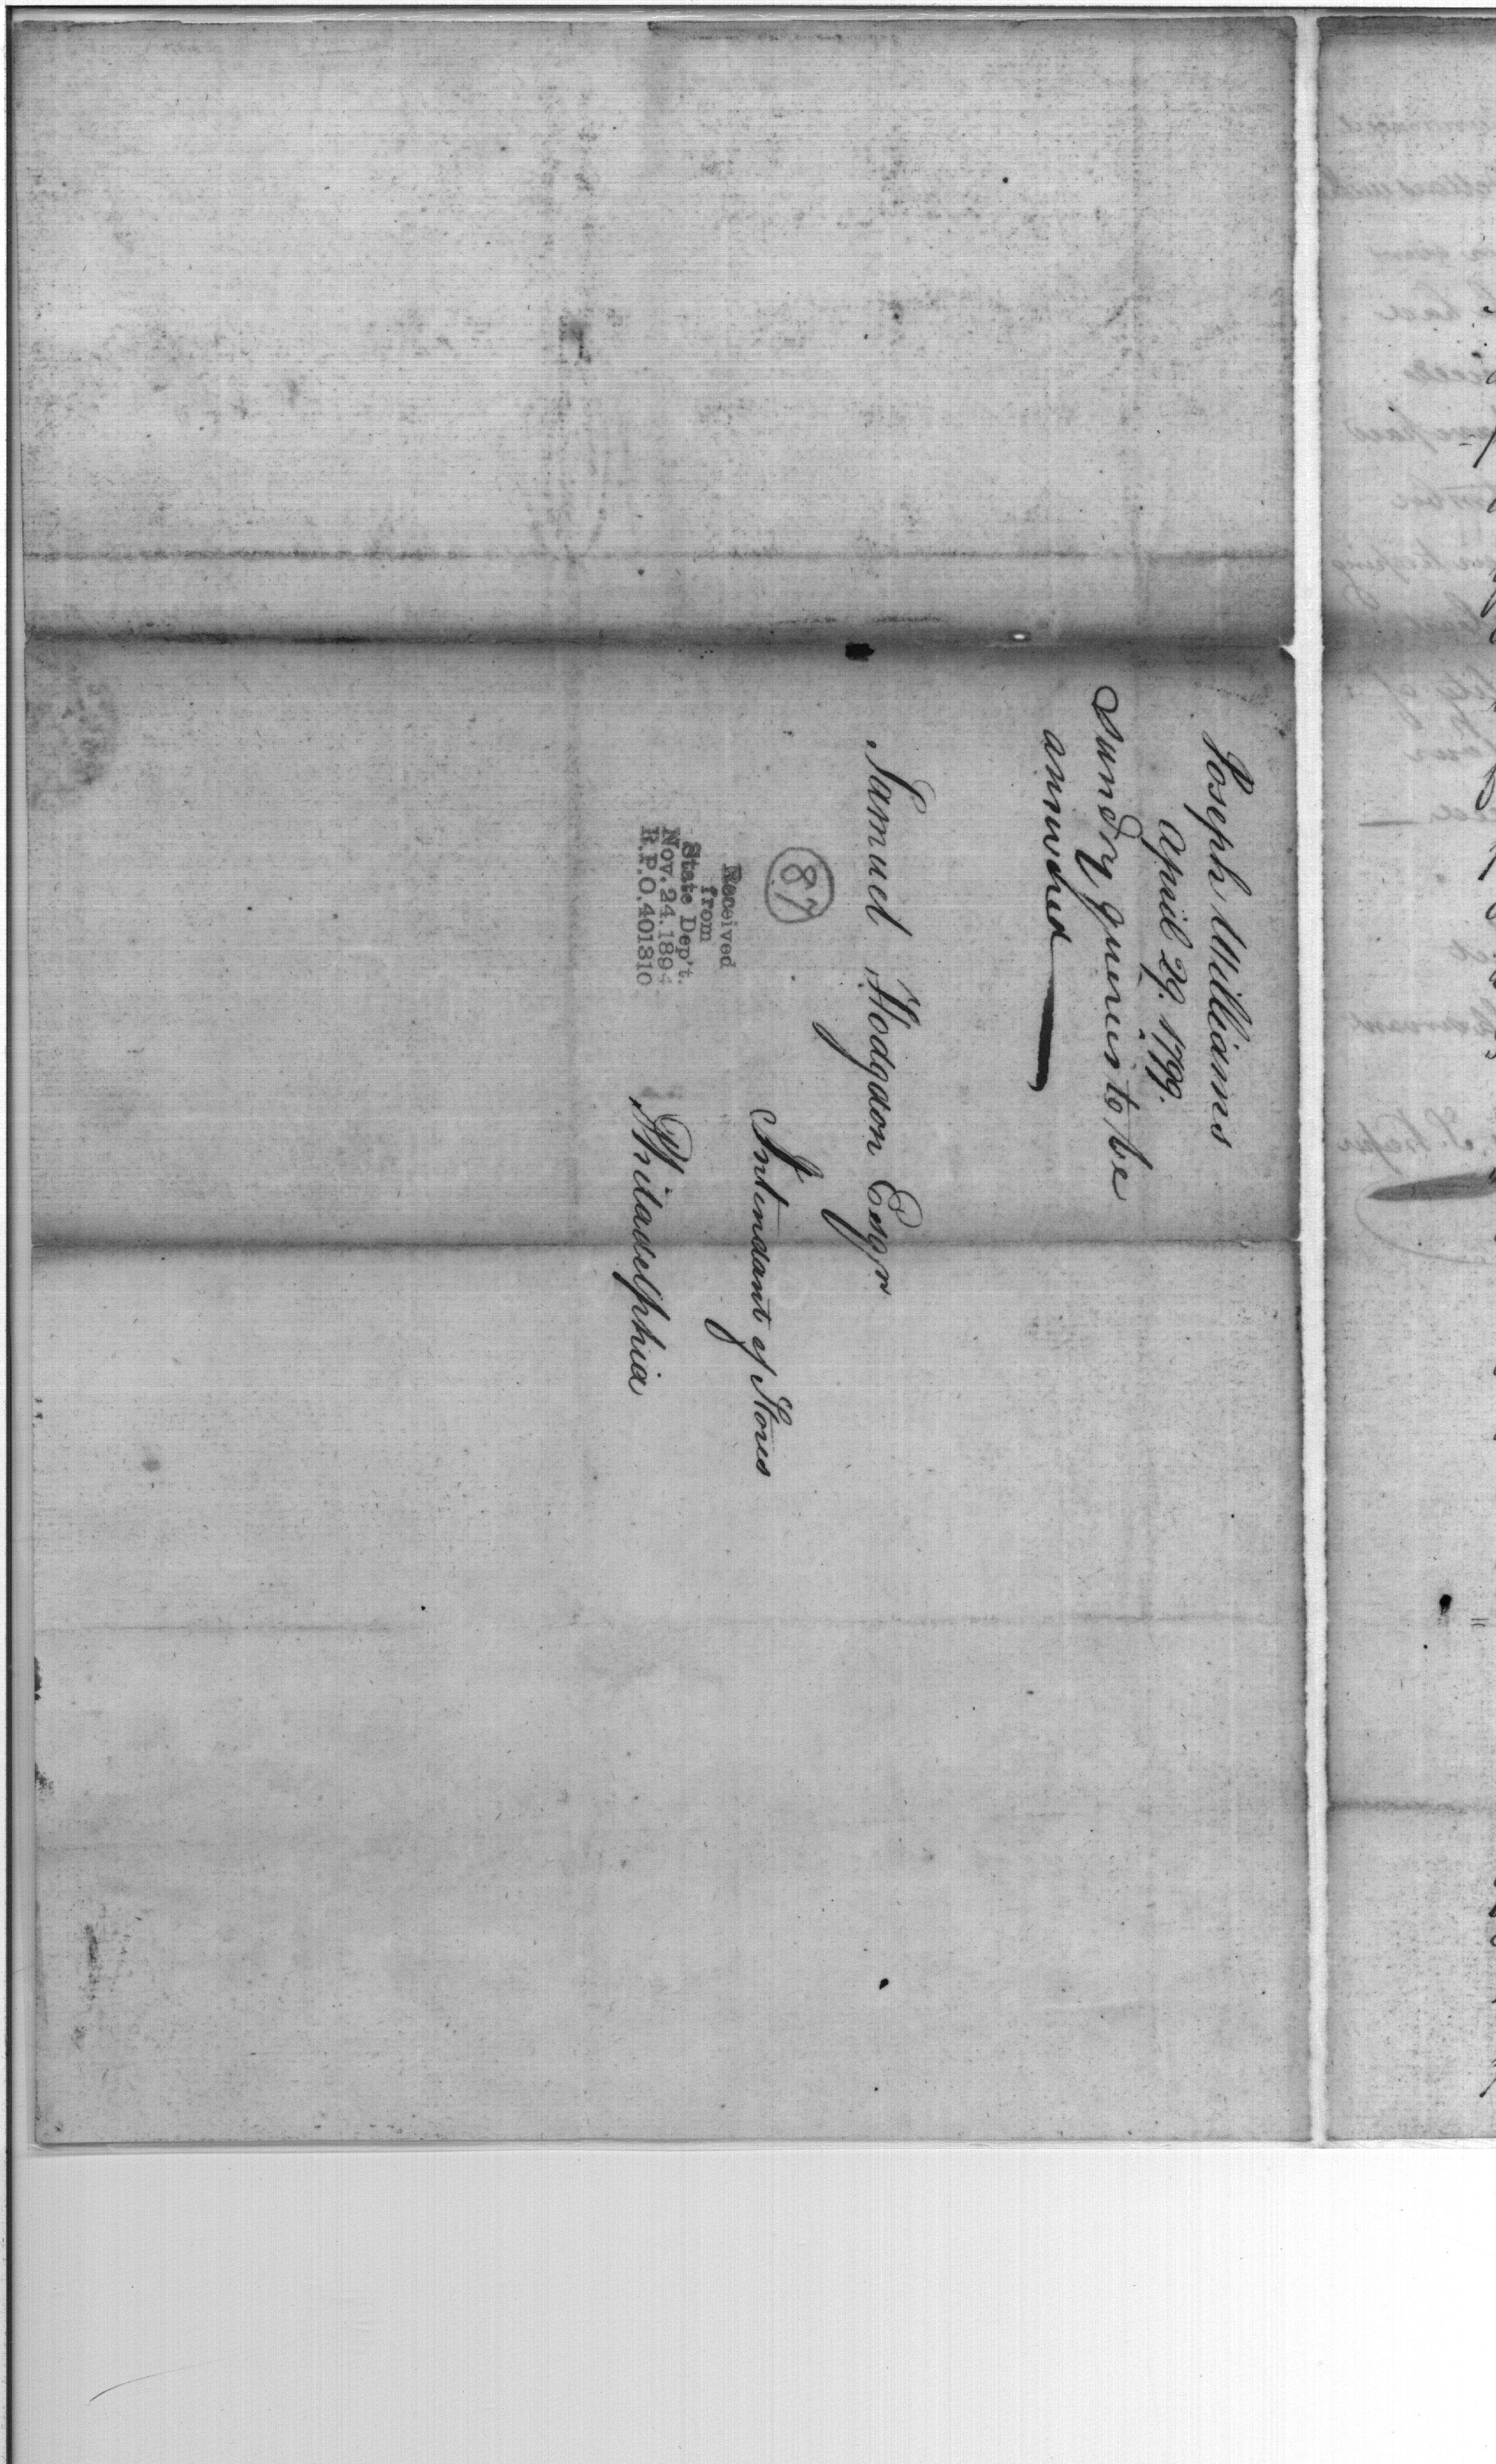 Joseph Williams
April 29. 1799.
Sundry queries to be
answered
Samuel Hodgdon Esqr
Intendant of Stores
Philadelphia
87
Received
from
State Dep't.
Nov. 24. 1894
R.P.O. 401310